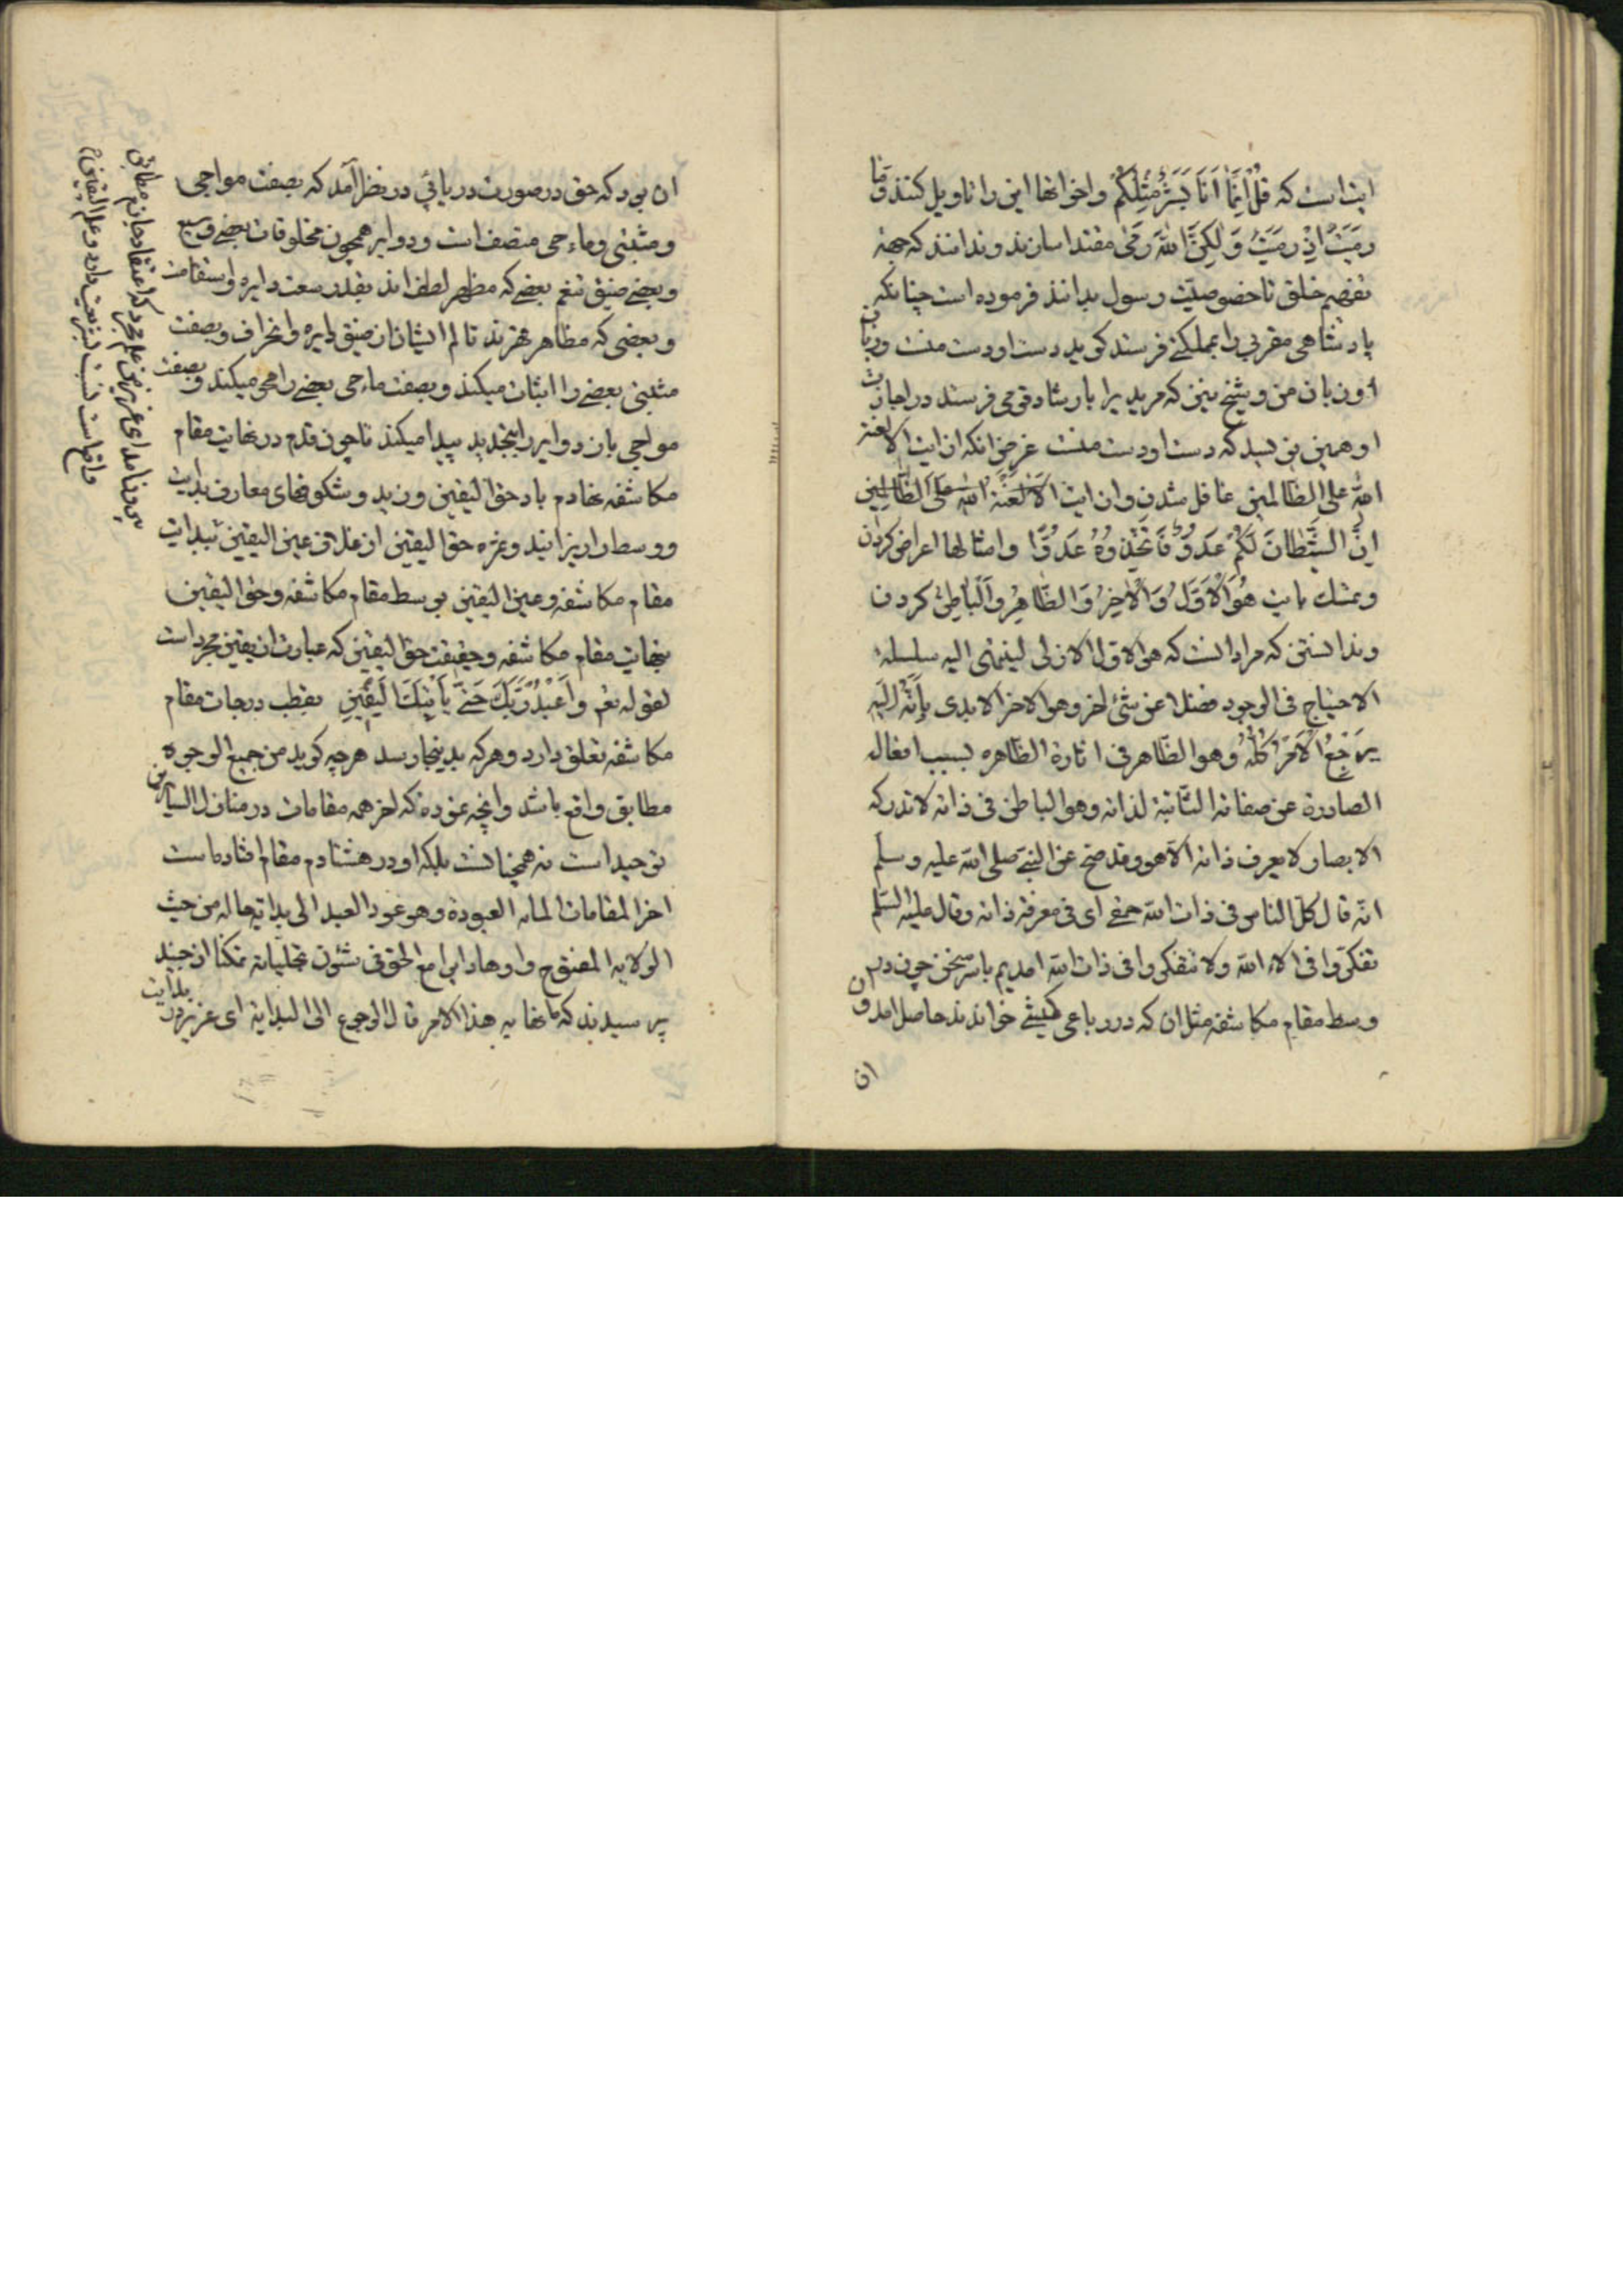 ایت است که قُلْ اِنَّمَا اَنَا بَشَرٌ مِثْلُكُمْ واخواتها این را تاویل کنند وَمَا
رَمَيْتَ اِذْ رَمَيْتَ وَلٰكِنَّ اللّٰهَ رَمٰى مقتدا سازند وندانند که جهة
تفهیم خلق تا خصوصیّت رسول بدانند فرموده است چنانکه
پادشاهی مقربی را بمملکتی فرستد کوید دست او دست منست وزبان
او زبان من وشیخ نیز که مریدی را بارشاد قومی فرستد در اجازت
او همین نویسد که دست او دست منست غرض انکه از ایت الا لعنة
اللّه علی الظالمین غافل شدن واز ایت اَلَا لَعْنَةُ اللّٰهِ عَلَى الظَّالِمِينَ
اِنَّ الشَّيْطَانَ لَكُمْ عَدُوٌّ فَاتَّخِذُوهُ عَدُوًّا وامثالها اعراض کردن
وتمسّك بایت هُوَ الْاَوَّلُ وَالْاٰخِرُ وَالظَّاهِرُ وَالْبَاطِنُ کردن
وندانستن که مراد انست که هو الاول الازلی لینتهی الیه سلسلة
الاحتیاج فی الوجود فضلا عن شیٔ اخر وهو الاخر الابدی بِاَنَّهُ اِلَيْهِ
يَرْجِعُ الْاَمْرُ كُلُّهُ وهو الظاهر فی اثارة الظاهره بسبب افعاله
الصادرة عن صفاته الثابتة لذاته وهو الباطن فی ذاته لا تدرکه
الابصار ولا یعرف ذاته الّا هو وقد صح عن النبیّ صلی اللّه علیه وسلم
انّه قال کلّ الناس فی ذات اللّه حمقی ای فی معرفة ذاته وقال علیه السّلم
تفکّروا فی الاء اللّه ولا تتفکروا فی ذات اللّه امدیم باسر سخن چون در
وسط مقام مکاشفه مثل ان که در رباعی خواندند حاصل امد وان
ان
ان بود که حق در صورت دریائی در نظر آمد که بصفت مواجی
ومثبتی وماحی متصف است ودوایر همچون مخلوقات بعضی وسیع
وبعضی ضیق تنعم بعضی که مظهر لطف اند بقدر سعت دایره واستقامت
وبعضی که مظاهر قهرند تالم ایشان از ضیق دایره وانحراف وبصفت
مثبتی بعضی را اثبات میکند وبصفت ماحی بعضی را محو میکند وبصفت
مواجی باز دوایر را بتجدید پیدا میکند تا چون قدم در نهایت مقام
مکاشفه نهادم باد حق الیقین وزید وشکوفهای معارف بدایت
ووسط را ریزانید وثمره حق الیقین از غلاف عین الیقین ببدایت
مقام مکاشفه وعین الیقین بوسط مقام مکاشفه وحق الیقین
بنهایت مقام مکاشفه وحقیقت حق الیقین که عبارت از یقین مجرد است
لقوله تعم وَاعْبُدْ رَبَّكَ حَتّٰى يَاْتِيَكَ الْيَقِينُ بقطب درجات مقام
مکاشفه تعلق دارد وهرکه بدینجا رسد هرچه کوید من جمیع الوجوه
مطابق واقع باشد وانچه نموده که اخر همه مقامات در منازل السایرین
توحید است نه همچنانست بلکه او در هشتادم مقام افتاده است
اخر المقامات المایه العبودة وهو عود العبد الی بدایة حاله من حیث
الولایه المفتوح واوها دایرا مع الحق فی شئون تجلیاته تمکنا از جنید
پرسیدند که ما نهایة هذا الامر قال الرجوع الی البدایة ای عزیز در بدایت
که اعتقاد جازم مطابق
واقع است